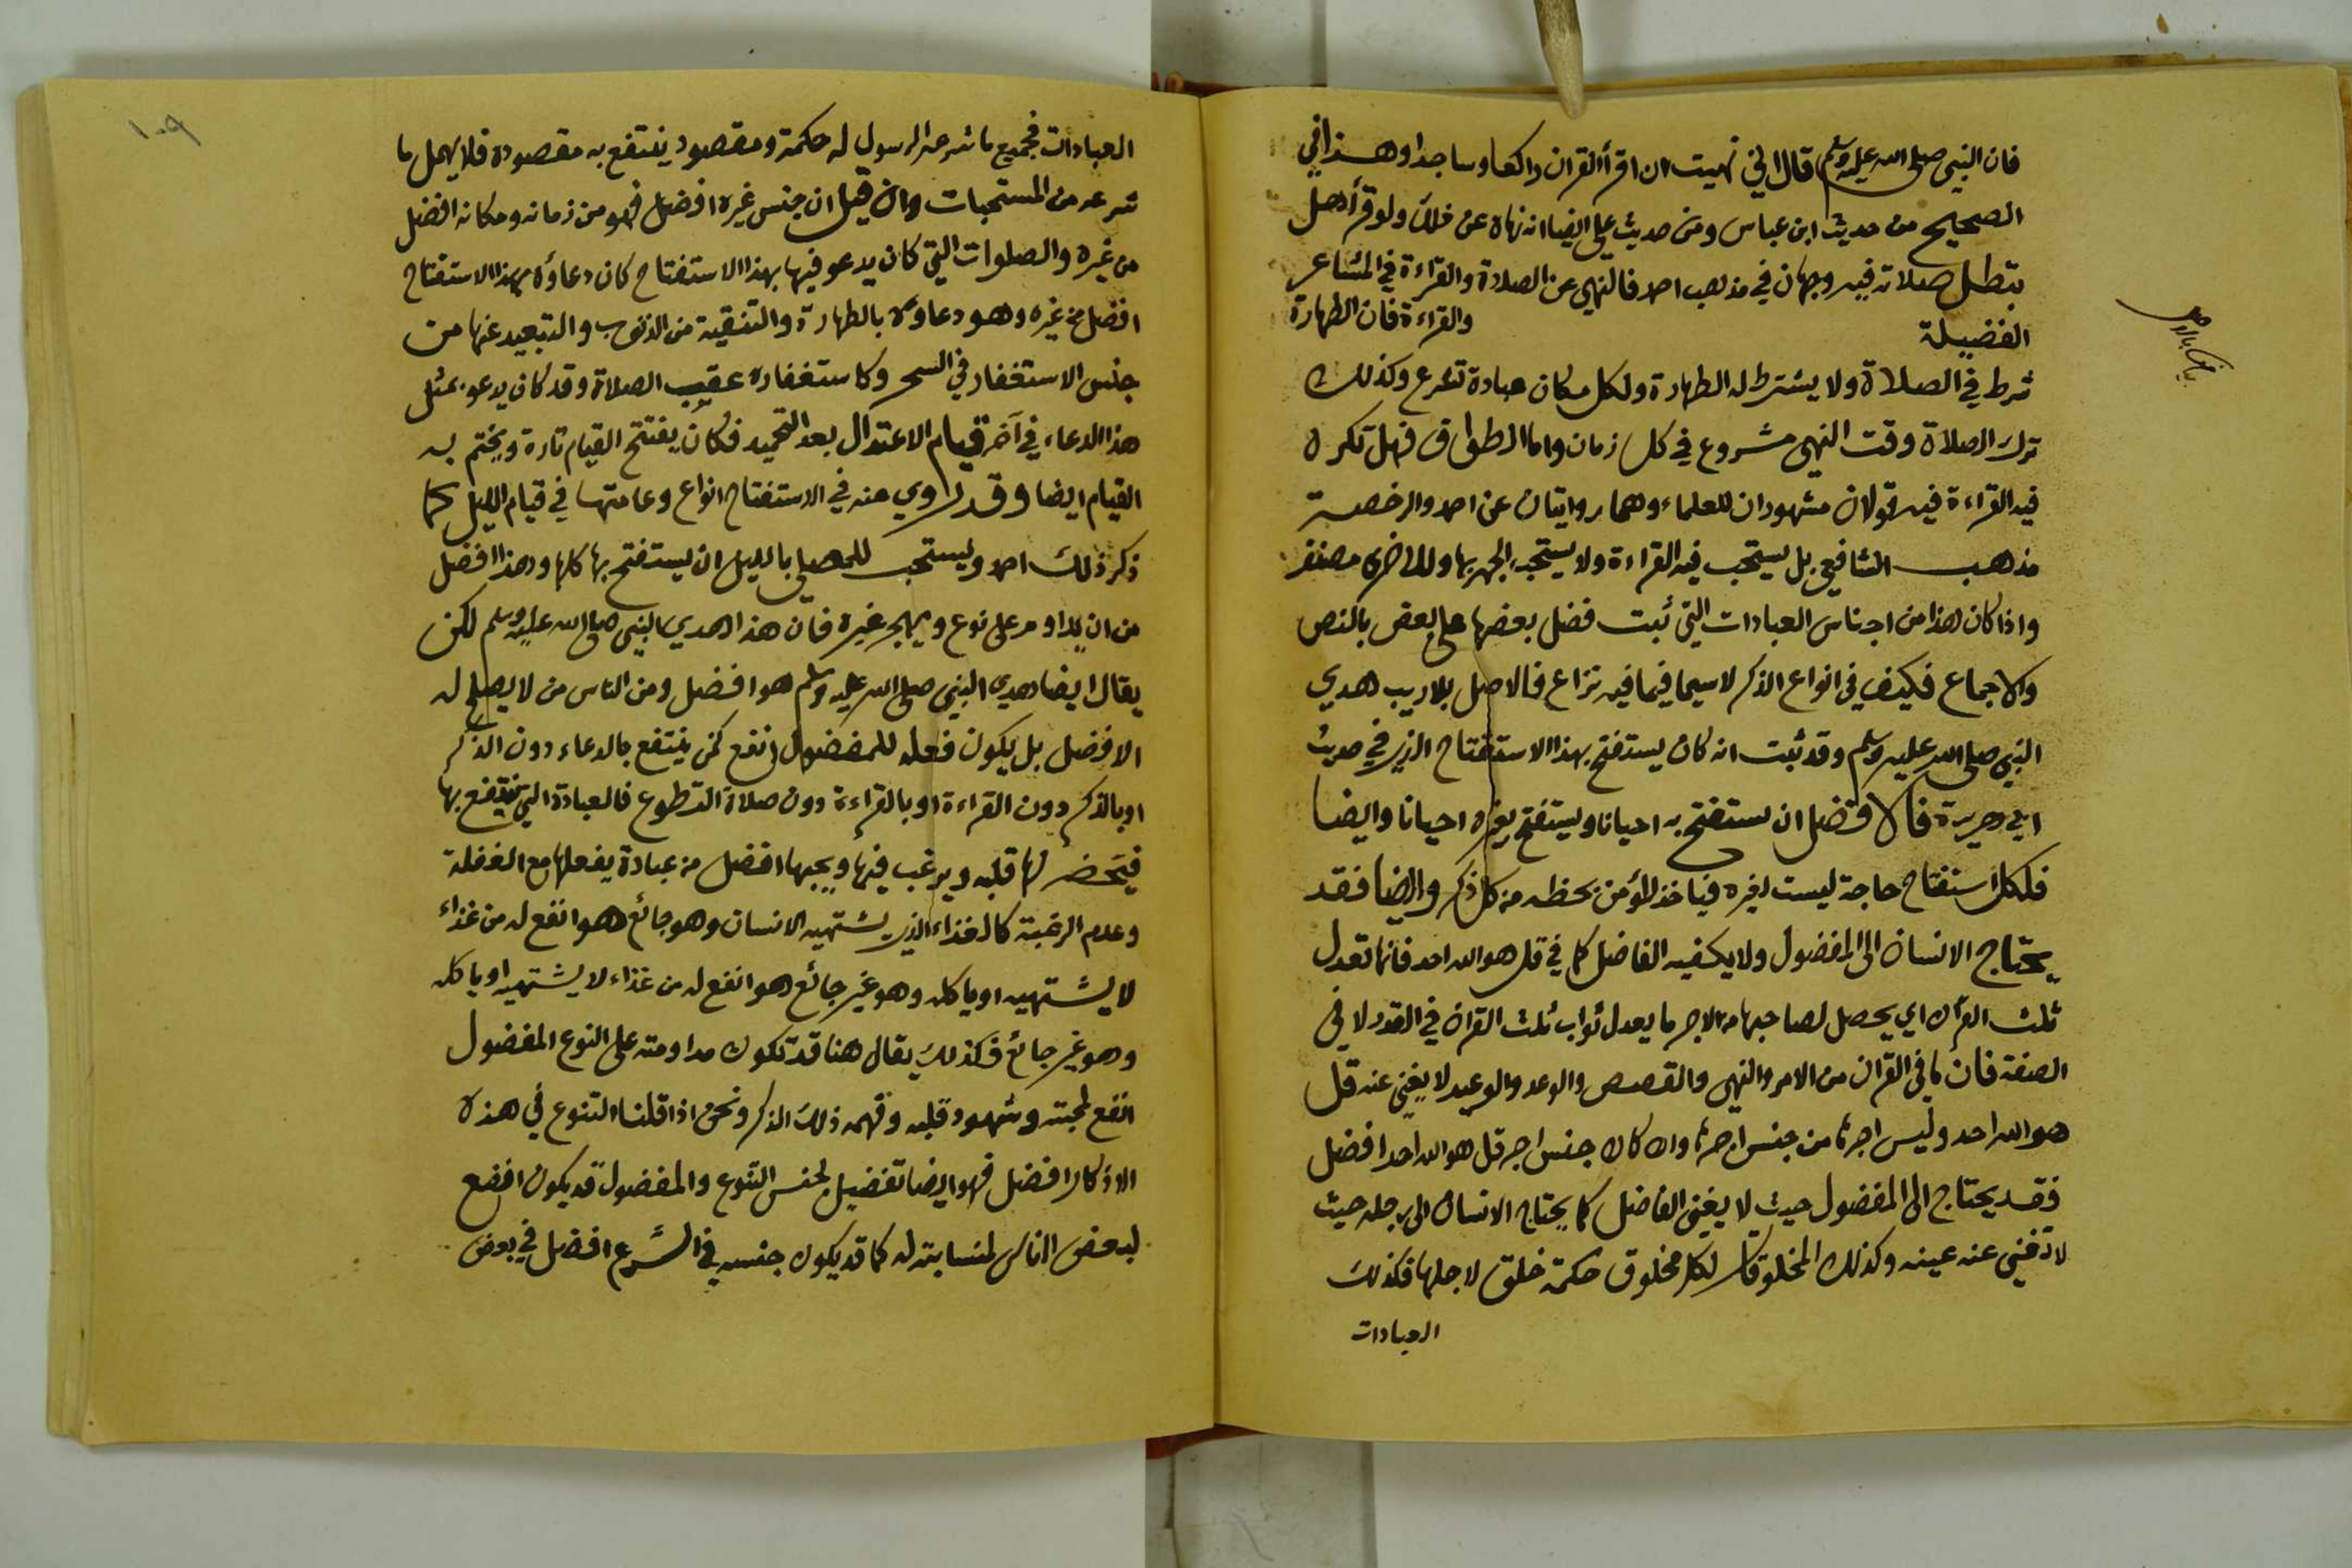 فان النبي صلى الله عليه وسلم قال اني نهيت ان اقرأ القران راكعا وساجدا وهذا في
الصحيح من حديث ابن عباس ومن حديث علي ايضا انه نهاه عن ذلك ولو قرأ هل
تبطل صلاته فيه وجهان في مذهب احمد فالنهي عن الصلاة والقراءة في المشاعر
الفضيلة والقراءة فان الطهارة
شرط في الصلاة ولا يشترط له الطهارة ولكل مكان عبادة تشرع وكذلك
ترك الصلاة وقت النهي مشروع في كل زمان واما الطواف فهل تكره
فيه القراءة فيه قولان مشهوران للعلماء وهما روايتان عن احمد والرخصة
مذهب الشافعي بل يستحب فيه القراءة ولا يستحب الجهر بها
واذا كان هذا من اجناس العبادات التي ثبت فضل بعضها على بعض بالنص
والاجماع فكيف في انواع الذكر لاسيما فيما فيه نزاع فالاصل بلا ريب هدي
النبي صلى الله عليه وسلم وقد ثبت انه كان يستفتح بهذا الاستفتاح الذي في حديث
ابي هريرة فالافضل ان يستفتح به احيانا ويستفتح بغيره احيانا وايضا
فلكل استفتاح حاجة ليست لغيره فياخذ المؤمن بحظه من كل ذكر وايضا فقد
يحتاج الانسان الى المفضول ولا يكفيه الفاضل كما في قل هو الله احد فانها تعدل
ثلث القرآن اي يحصل لصاحبها من الاجر ما يعدل ثواب ثلث القران في القدر لا في
الصفة فان ما في القران من الامر والنهي والقصص والوعد والوعيد لا يغني عنه قل
هو الله احد وليس اجرها من جنس اجرها وان كان جنس اجر قل هو الله احد افضل
فقد يحتاج الى المفضول حيث لا يغني الفاضل كما يحتاج الانسان الى رجله حيث
لا تغني عنه عينه وكذلك المخلوقات لكل مخلوق حكمة خلق لاجلها فكذلك
العبادات
١٠٩
العبادات فجميع ما شرعه الرسول له حكمة ومقصود ينتفع به مقصوده فلا يهمل ما
شرعه من المستحبات وان قيل ان جنس غيره افضل فهو من زمانه ومكانه افضل
من غيره والصلوات التي كان يدعو فيها بهذا الاستفتاح كان دعاؤه بهذا الاستفتاح
افضل من غيره وهو دعاوه بالطهارة والتنقية من الذنوب والتبعيد عنها من
جنس الاستغفار في السحر وكاستغفاره عقيب الصلاة وقد كان يدعو بمثل
هذا الدعاء في آخر قيام الاعتدال بعد التحميد فكان يفتتح القيام تارة ويختم به
القيام ايضا وقد روي عنه في الاستفتاح انواع وعامتها في قيام الليل كما
ذكر ذلك احمد ويستحب للمصلي بالليل ان يستفتح بها كلها وهذا افضل
من ان يداوم على نوع ويهجر غيره فان هذا هدي النبي صلى الله عليه وسلم لكن
يقال ايضا هدي النبي صلى الله عليه وسلم هو افضل ومن الناس من لا يصلح له
الافضل بل يكون فعله للمفضول انفع كمن ينتفع بالدعاء دون الذكر
او بالذكر دون القراءة او بالقراءة دون صلاة التطوع فالعبادة التي ينتفع بها
فيحضر لها قلبه ويرغب فيها ويحبها افضل من عبادة يفعلها مع الغفلة
وعدم الرغبة كالغذاء الذي يشتهيه الانسان وهو جائع هو انفع له من غذاء
لا يشتهيه او ياكله وهو غير جائع هو انفع له من غذاء لا يشتهيه او ياكله
وهو غير جائع فكذلك يقال هنا قد تكون مداومته على النوع المفضول
انفع لمحبته وشهود قلبه وفهمه ذلك الذكر ونحن اذا قلنا التنوع في هذه
الاذكار افضل فهو ايضا تفضيل لجنس التنوع والمفضول قد يكون انفع
لبعض الناس لمناسبته له كما قد يكون جنسه في الشرع افضل في بعض